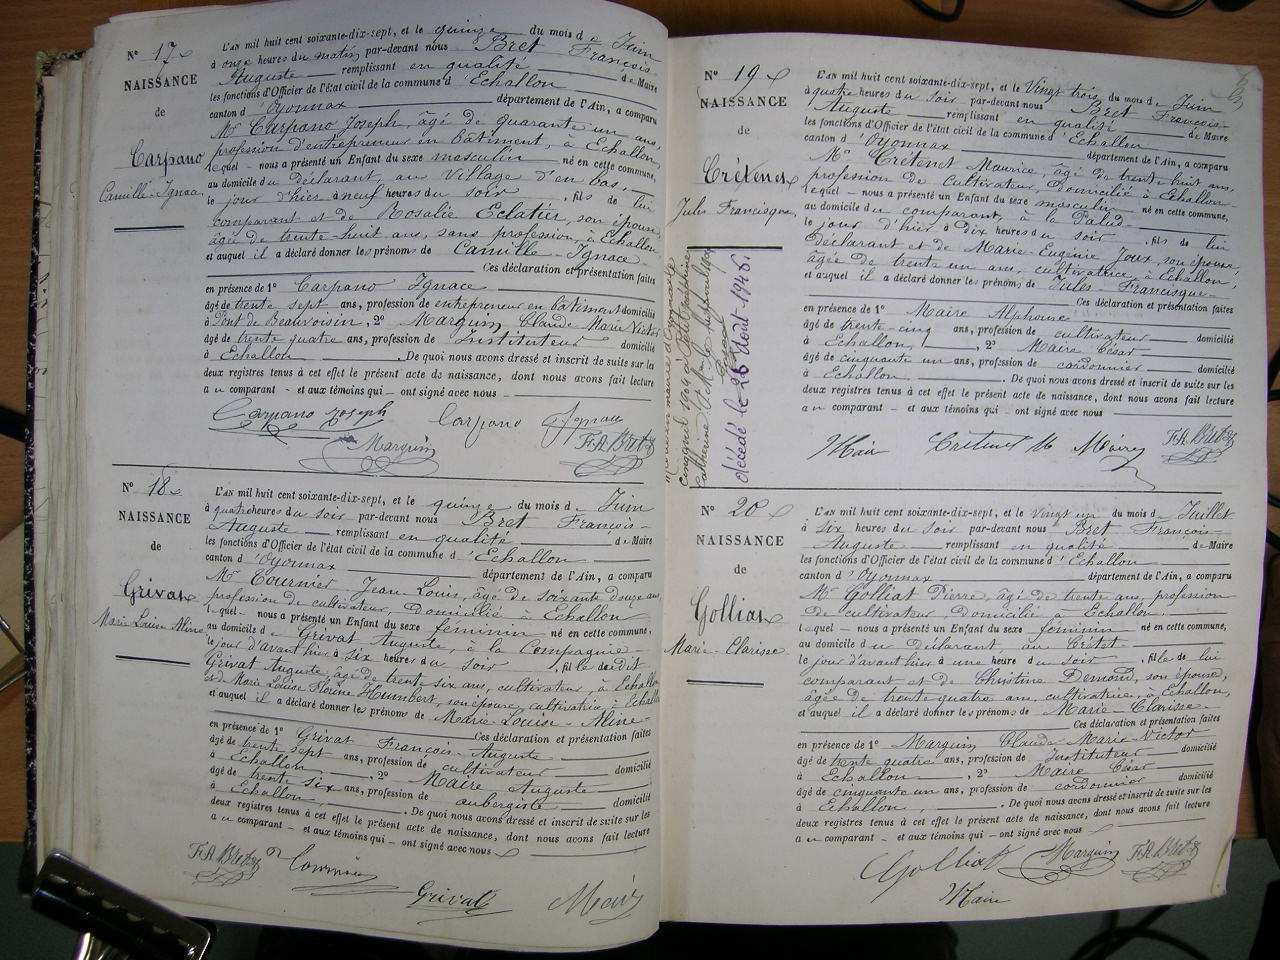 N° 17
NAISSANCE
de
Carpano
Camille-Ignace
L'AN mil huit cent soixante-dix-sept, et le quinze du mois de Juin
à onze heures du matin par-devant nous Bret François-
Auguste remplissant en qualité de Maire
les fonctions d'Officier de l'état civil de la commune d'Echallon
canton d'Oyonnax département de l'Ain, a comparu
Mr Carpano Joseph, âgé de quarante un ans,
profession d'entrepreneur en bâtiment, à Echallon
lequel nous a présenté un Enfant du sexe masculin né en cette commune,
au domicile du déclarant, au Village d'en bas,
le jour d'hier à neuf heures du soir, fils de lui
comparant et de Rosalie Eclatier, son épouse,
âgée de trente-huit ans, sans profession, à Echallon
et auquel il a déclaré donner les prénoms de Camille-Ignace
Ces déclaration et présentation faites
en présence de 1° Carpano Ignace
âgé de trente sept ans, profession de entrepreneur en bâtiment domicilié
à Pont de Beauvoisin, 2° Marquin Claude Marie Victor
âgé de trente quatre ans, profession de Instituteur domicilié
à Echallon. De quoi nous avons dressé et inscrit de suite sur les
deux registres tenus à cet effet le présent acte de naissance, dont nous avons fait lecture
au comparant - et aux témoins qui - ont signé avec nous
Carpano Joseph Carpano Ignace
Marquin F.A. Bret
N° 18
NAISSANCE
de
Grivat
Marie Louise Aline
L'AN mil huit cent soixante-dix-sept, et le quinze du mois de Juin
à quatre heures du soir par-devant nous Bret François-
Auguste remplissant en qualité de Maire
les fonctions d'Officier de l'état civil de la commune d'Echallon
canton d'Oyonnax département de l'Ain, a comparu
Mr Tournier Jean Louis, âgé de soixante douze ans,
profession de cultivateur, domicilié à Echallon
lequel nous a présenté un Enfant du sexe féminin né en cette commune,
au domicile de Grivat Auguste, à la Compagnie-
le jour d'avant hier à six heures du soir, fille dudit
Grivat Auguste, âgé de trente six ans, cultivateur, à Echallon
et de Marie Louise Humbert, son épouse, cultivatrice, à Echallon
et auquel il a déclaré donner les prénoms de Marie-Louise-Aline-
Ces déclaration et présentation faites
en présence de 1° Grivat François-Auguste
âgé de trente sept ans, profession de cultivateur domicilié
à Echallon, 2° Maire Auguste
âgé de trente six ans, profession de aubergiste domicilié
à Echallon. De quoi nous avons dressé et inscrit de suite sur les
deux registres tenus à cet effet le présent acte de naissance, dont nous avons fait lecture
au comparant - et aux témoins qui - ont signé avec nous
F.A. Bret Tournier
Grivat
N° 19
NAISSANCE
de
Crétenet
Jules Francisque
décédé le 26 Août 1946.
L'AN mil huit cent soixante-dix-sept, et le Vingt trois du mois de Juin
à quatre heures du soir par-devant nous Bret François-
Auguste remplissant en qualité de Maire
les fonctions d'Officier de l'état civil de la commune d'Echallon
canton d'Oyonnax département de l'Ain, a comparu
Mr Crétenet Maurice, âgé de trente huit ans,
profession de cultivateur, domicilié à Echallon-
lequel nous a présenté un Enfant du sexe masculin né en cette commune,
au domicile du comparant, à la Palud-
le jour d'hier à dix heures du soir, fils de lui
déclarant et de Marie-Eugénie Joux, son épouse,
âgée de trente un ans, cultivatrice, à Echallon,
et auquel il a déclaré donner les prénoms de Jules-Francisque-
Ces déclaration et présentation faites
en présence de 1° Maire Alphonse
âgé de trente-cinq ans, profession de cultivateur domicilié
à Echallon, 2° Maire César
âgé de cinquante un ans, profession de cordonnier domicilié
à Echallon. De quoi nous avons dressé et inscrit de suite sur les
deux registres tenus à cet effet le présent acte de naissance, dont nous avons fait lecture
au comparant - et aux témoins qui - ont signé avec nous
Maire Crétenet Maire F.A. Bret
N° 20
NAISSANCE
de
Golliat
Marie-Clarisse
L'AN mil huit cent soixante-dix-sept, et le Vingt un du mois de Juillet
à six heures du soir par-devant nous Bret François-
Auguste remplissant en qualité de Maire
les fonctions d'Officier de l'état civil de la commune d'Echallon
canton d'Oyonnax département de l'Ain, a comparu
Mr Golliat Pierre, âgé de trente ans, profession
de cultivateur, domicilié à Echallon
lequel nous a présenté un Enfant du sexe féminin né en cette commune,
au domicile du déclarant, au Crétet
le jour d'avant hier à une heure du soir, fille de lui
comparant et de Christine Demond, son épouse,
âgée de trente quatre ans, cultivatrice, à Echallon,
et auquel il a déclaré donner les prénoms de Marie-Clarisse-
Ces déclaration et présentation faites
en présence de 1° Marquin Claude Marie Victor
âgé de trente quatre ans, profession de Instituteur domicilié
à Echallon, 2° Maire César
âgé de cinquante un ans, profession de cordonnier domicilié
à Echallon. De quoi nous avons dressé et inscrit de suite sur les
deux registres tenus à cet effet le présent acte de naissance, dont nous avons fait lecture
au comparant - et aux témoins qui - ont signé avec nous
Golliat Marquin F.A. Bret
Maire